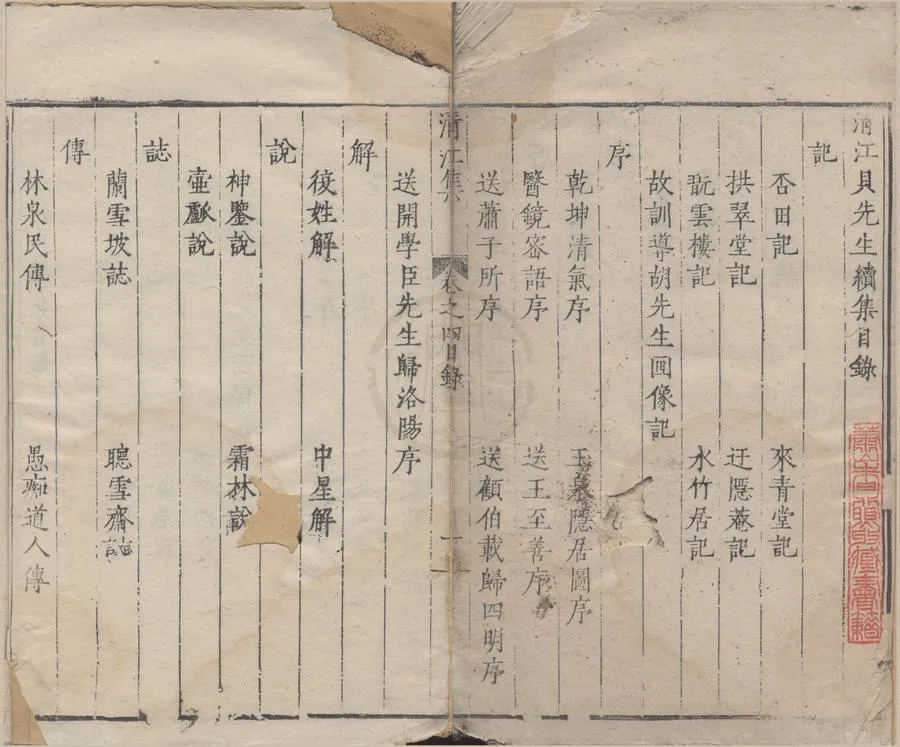 清江貝先生續集目錄
記
杏田記 來青堂記
拱翠堂記 迂隱菴記
翫雲樓記 水竹居記
故訓導胡先生圖像記
序
乾坤清氣序 玉泉隱居圖序
醫鏡密語序 送王至善序
送蕭子所序 送顧伯載歸四明序
清江集 卷之四目錄 一
送開學臣先生歸洛陽序
解
復姓解 中星解
說
神鑒說 霜林說
壺
說
誌
蘭雪坡誌 聽雪齋誌
傳
林泉民傳 愚痴道人傳